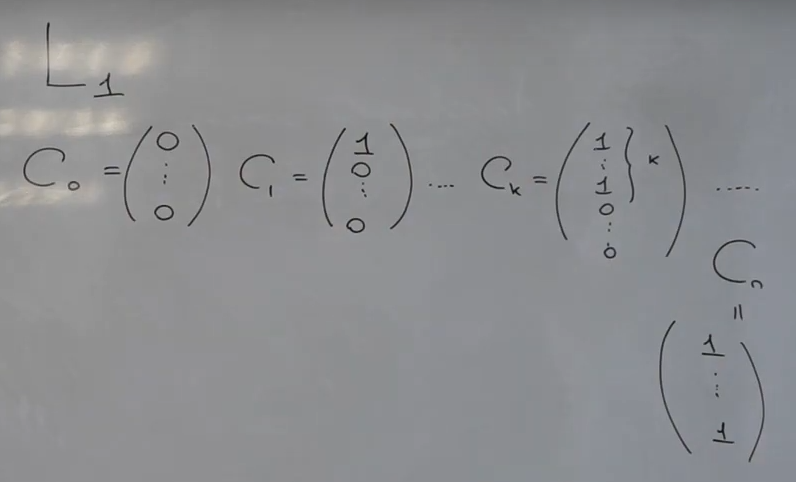 L₁
C₀ = (0 ⋮ 0) C₁ = (1 0 ⋮ 0) .... Cₖ = (1 ⋮ 1 } k 0 ⋮ 0) .....
Cₙ
=
(1 ⋮ 1)